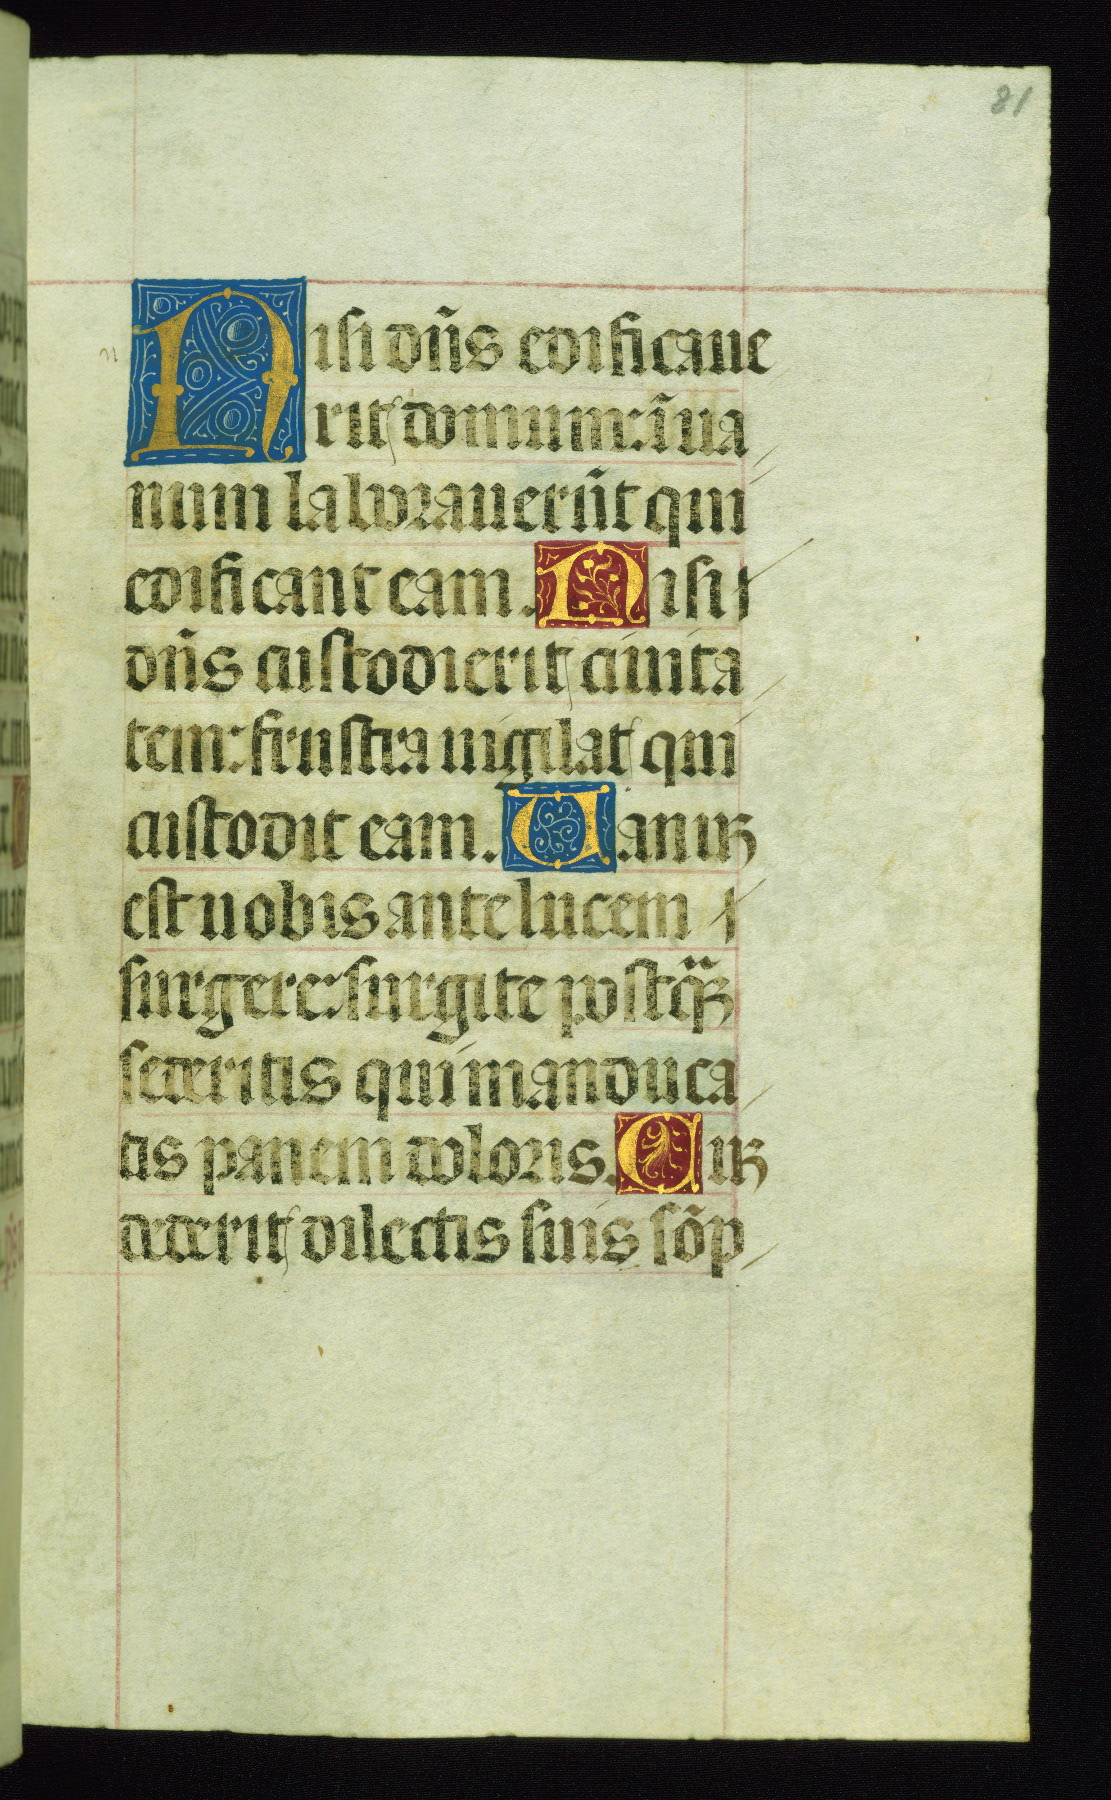 81
n
Nisi dñs edificaue
rit domum: ĩ ua
num laborauerũt qui
edificant eam. Nisi
dñs custodierit ciuita
tem: frustra uigilat qui
custodit eam. Uanũ
est uobis ante lucem
surgere: surgite postq̃
sederitis qui manduca
tis panem doloris. Cũ
dederit dilectis suis sõp